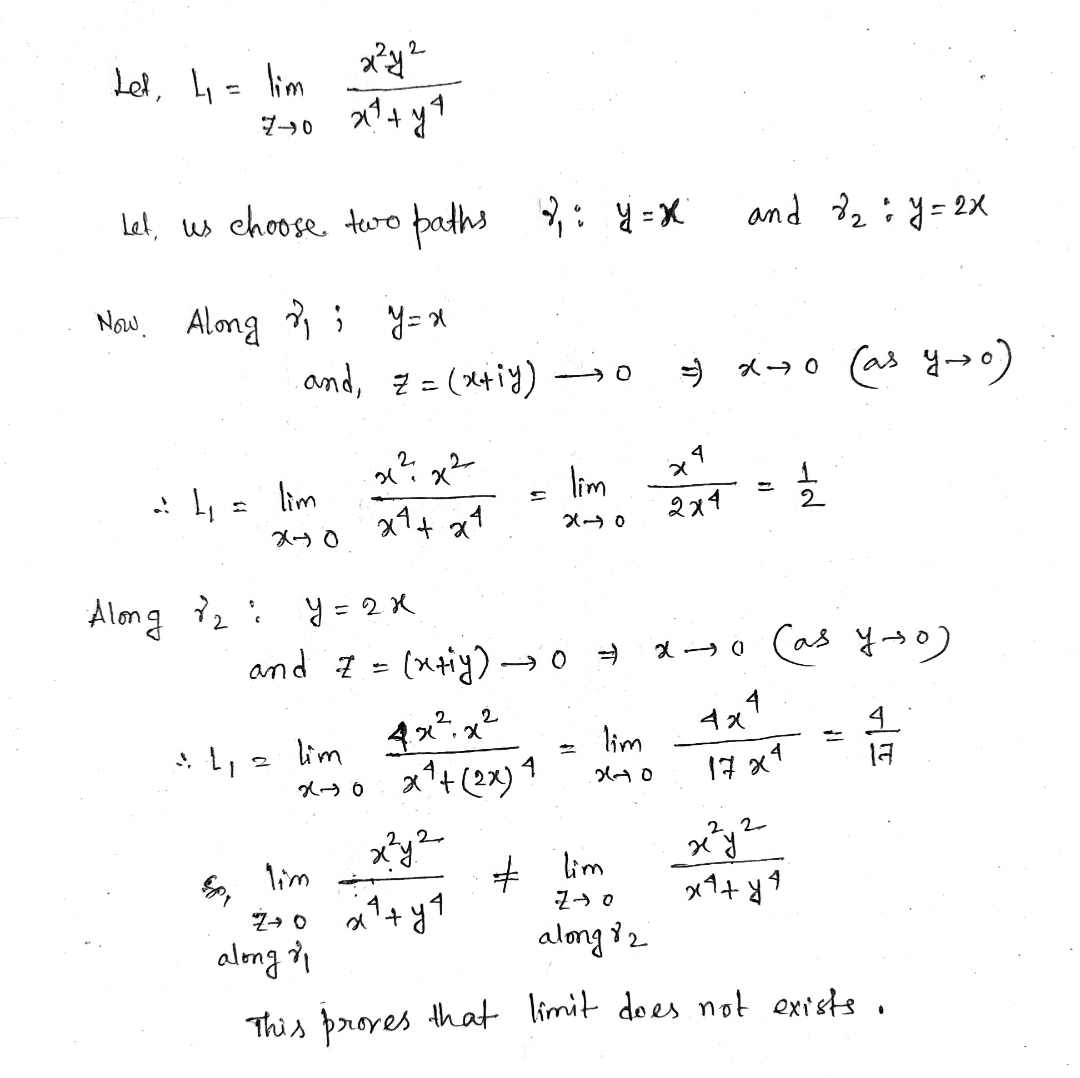 Let, L₁ = lim z→0 x²y² / x⁴+y⁴
Let, us choose two paths γ₁: y=x and γ₂: y=2x
Now. Along γ₁; y=x
and, z = (x+iy) → 0 ⇒ x→0 (as y→0)
∴ L₁ = lim x→0 x².x² / x⁴+x⁴ = lim x→0 x⁴ / 2x⁴ = 1/2
Along γ₂: y=2x
and z = (x+iy) → 0 ⇒ x→0 (as y→0)
∴ L₁ = lim x→0 4x².x² / x⁴+(2x)⁴ = lim x→0 4x⁴ / 17x⁴ = 4/17
So, lim z→0 along γ₁ x²y² / x⁴+y⁴ ≠ lim z→0 along γ₂ x²y² / x⁴+y⁴
This proves that limit does not exists.